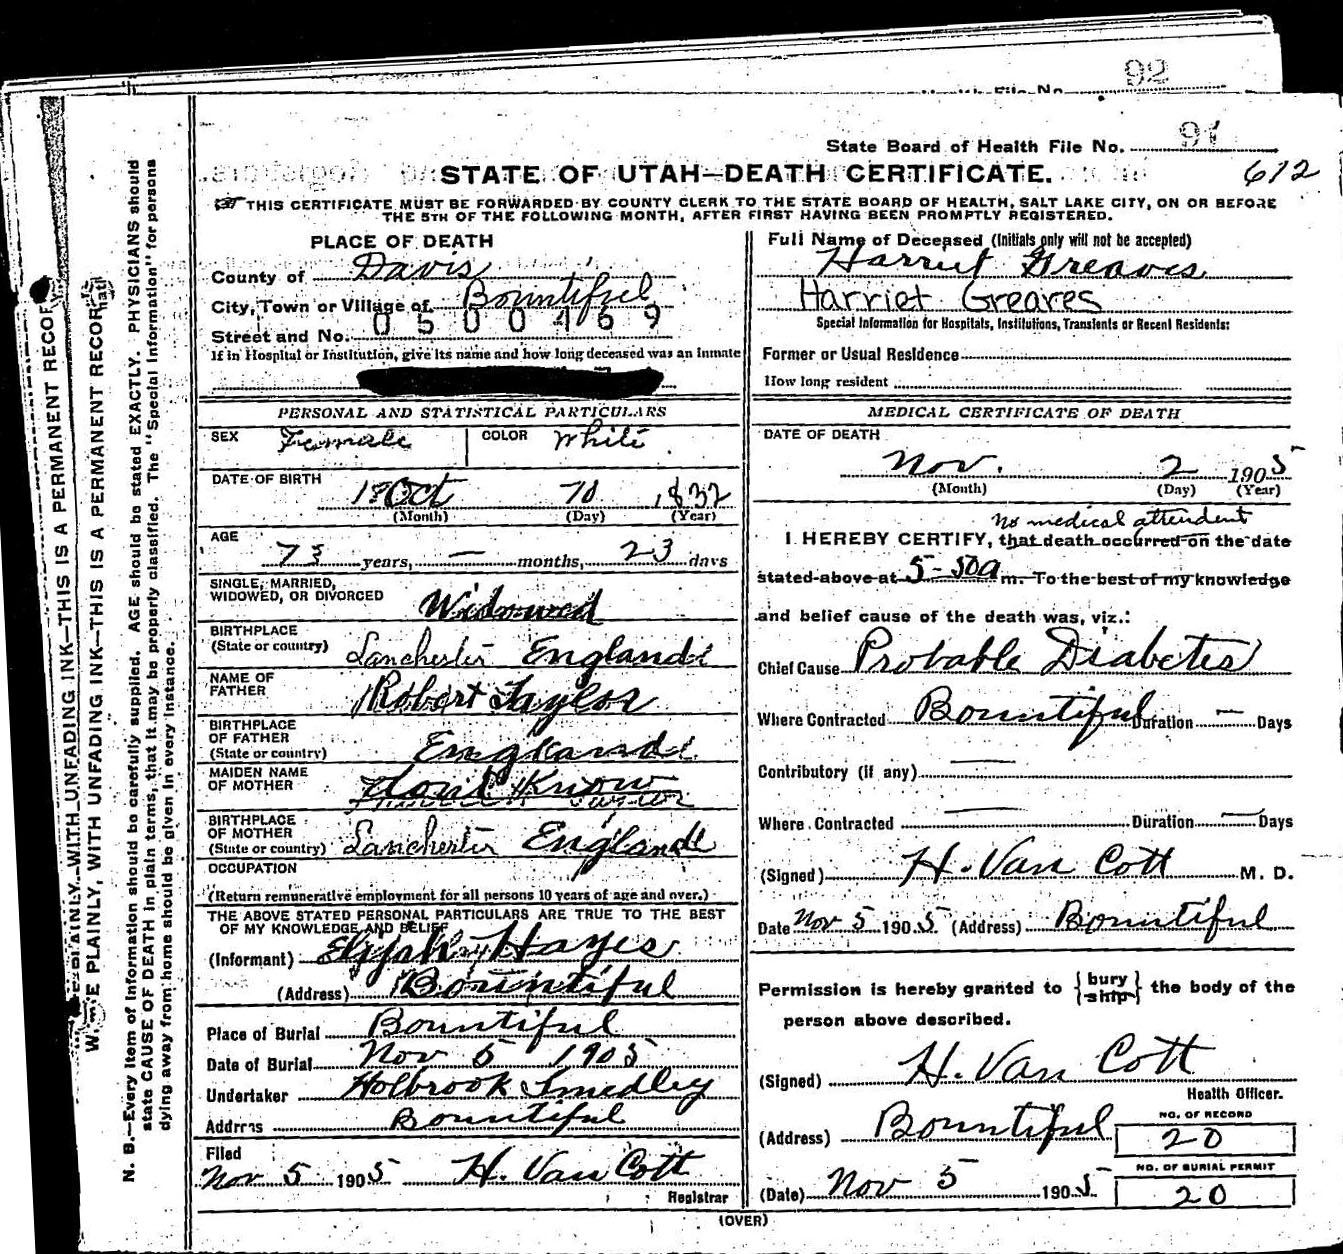 92
State Board of Health File No. 91
612
STATE OF UTAH—DEATH CERTIFICATE.
THIS CERTIFICATE MUST BE FORWARDED BY COUNTY CLERK TO THE STATE BOARD OF HEALTH, SALT LAKE CITY, ON OR BEFORE
THE 5TH OF THE FOLLOWING MONTH, AFTER FIRST HAVING BEEN PROMPTLY REGISTERED.
PLACE OF DEATH
County of Davis
City, Town or Village of Bountiful
0500469
Street and No.
If in Hospital or Institution, give its name and how long deceased was an inmate
PERSONAL AND STATISTICAL PARTICULARS
SEX Female COLOR White
DATE OF BIRTH Oct 10 1832
(Month) (Day) (Year)
AGE
73 years, — months, 23 days
SINGLE, MARRIED,
WIDOWED, OR DIVORCED Widowed
BIRTHPLACE
(State or country) Lanchester England
NAME OF
FATHER Robert Taylor
BIRTHPLACE
OF FATHER
(State or country) England
MAIDEN NAME
OF MOTHER Dont Know
BIRTHPLACE
OF MOTHER
(State or country) Lanchester England
OCCUPATION
(Return remunerative employment for all persons 10 years of age and over.)
THE ABOVE STATED PERSONAL PARTICULARS ARE TRUE TO THE BEST
OF MY KNOWLEDGE AND BELIEF
(Informant) Elijah Hayes
(Address) Bountiful
Place of Burial Bountiful
Date of Burial Nov 5 1905
Undertaker Holbrook Smedley
Address Bountiful
Filed
Nov 5 1905 H. Van Cott
Registrar
Full Name of Deceased (Initials only will not be accepted)
Harriet Greaves
Harriet Greares
Special Information for Hospitals, Institutions, Transients or Recent Residents:
Former or Usual Residence
How long resident
MEDICAL CERTIFICATE OF DEATH
DATE OF DEATH
Nov. 2 1905
(Month) (Day) (Year)
No medical attendent
I HEREBY CERTIFY, that death occurred on the date
stated above at 5-50a m. To the best of my knowledge
and belief cause of the death was, viz.:
Chief Cause Probable Diabetes
Where Contracted Bountiful Duration — Days
Contributory (if any) —
Where Contracted — Duration — Days
(Signed) H. Van Cott M. D.
Date Nov 5 1905 (Address) Bountiful
Permission is hereby granted to {bury ship} the body of the
person above described.
(Signed) H. Van Cott
Health Officer.
(Address) Bountiful
NO. OF RECORD
20
(Date) Nov 5 1905
NO. OF BURIAL PERMIT
20
(OVER)
WRITE PLAINLY, WITH UNFADING INK—THIS IS A PERMANENT RECORD
N. B.—Every item of information should be carefully supplied. AGE should be stated EXACTLY. PHYSICIANS should
state CAUSE OF DEATH in plain terms, that it may be properly classified. The "Special Information" for persons
dying away from home should be given in every instance.